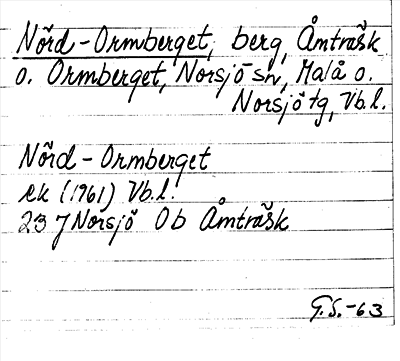 Nörd-Ormberget, berg, Åmträsk
o. Ormberget, Norsjö sn, Malå o.
Norsjö tg, Vb.l.
Nörd-Ormberget
ek (1961) Vb.l.
23 J Norsjö Ob Åmträsk
G.S.-63